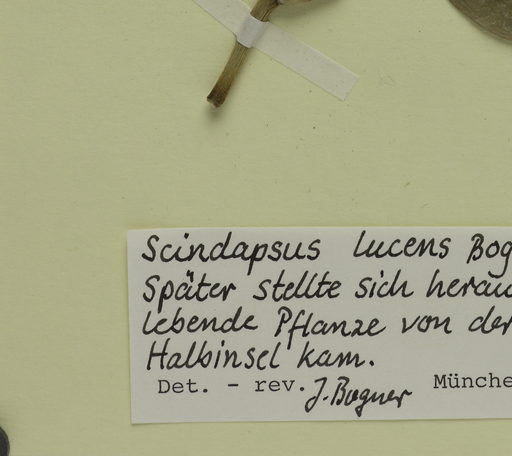 Scindapsus lucens Bog
Später stellte sich herau
lebende Pflanze von der
Halbinsel kam.
Det. - rev. J. Bogner Münche